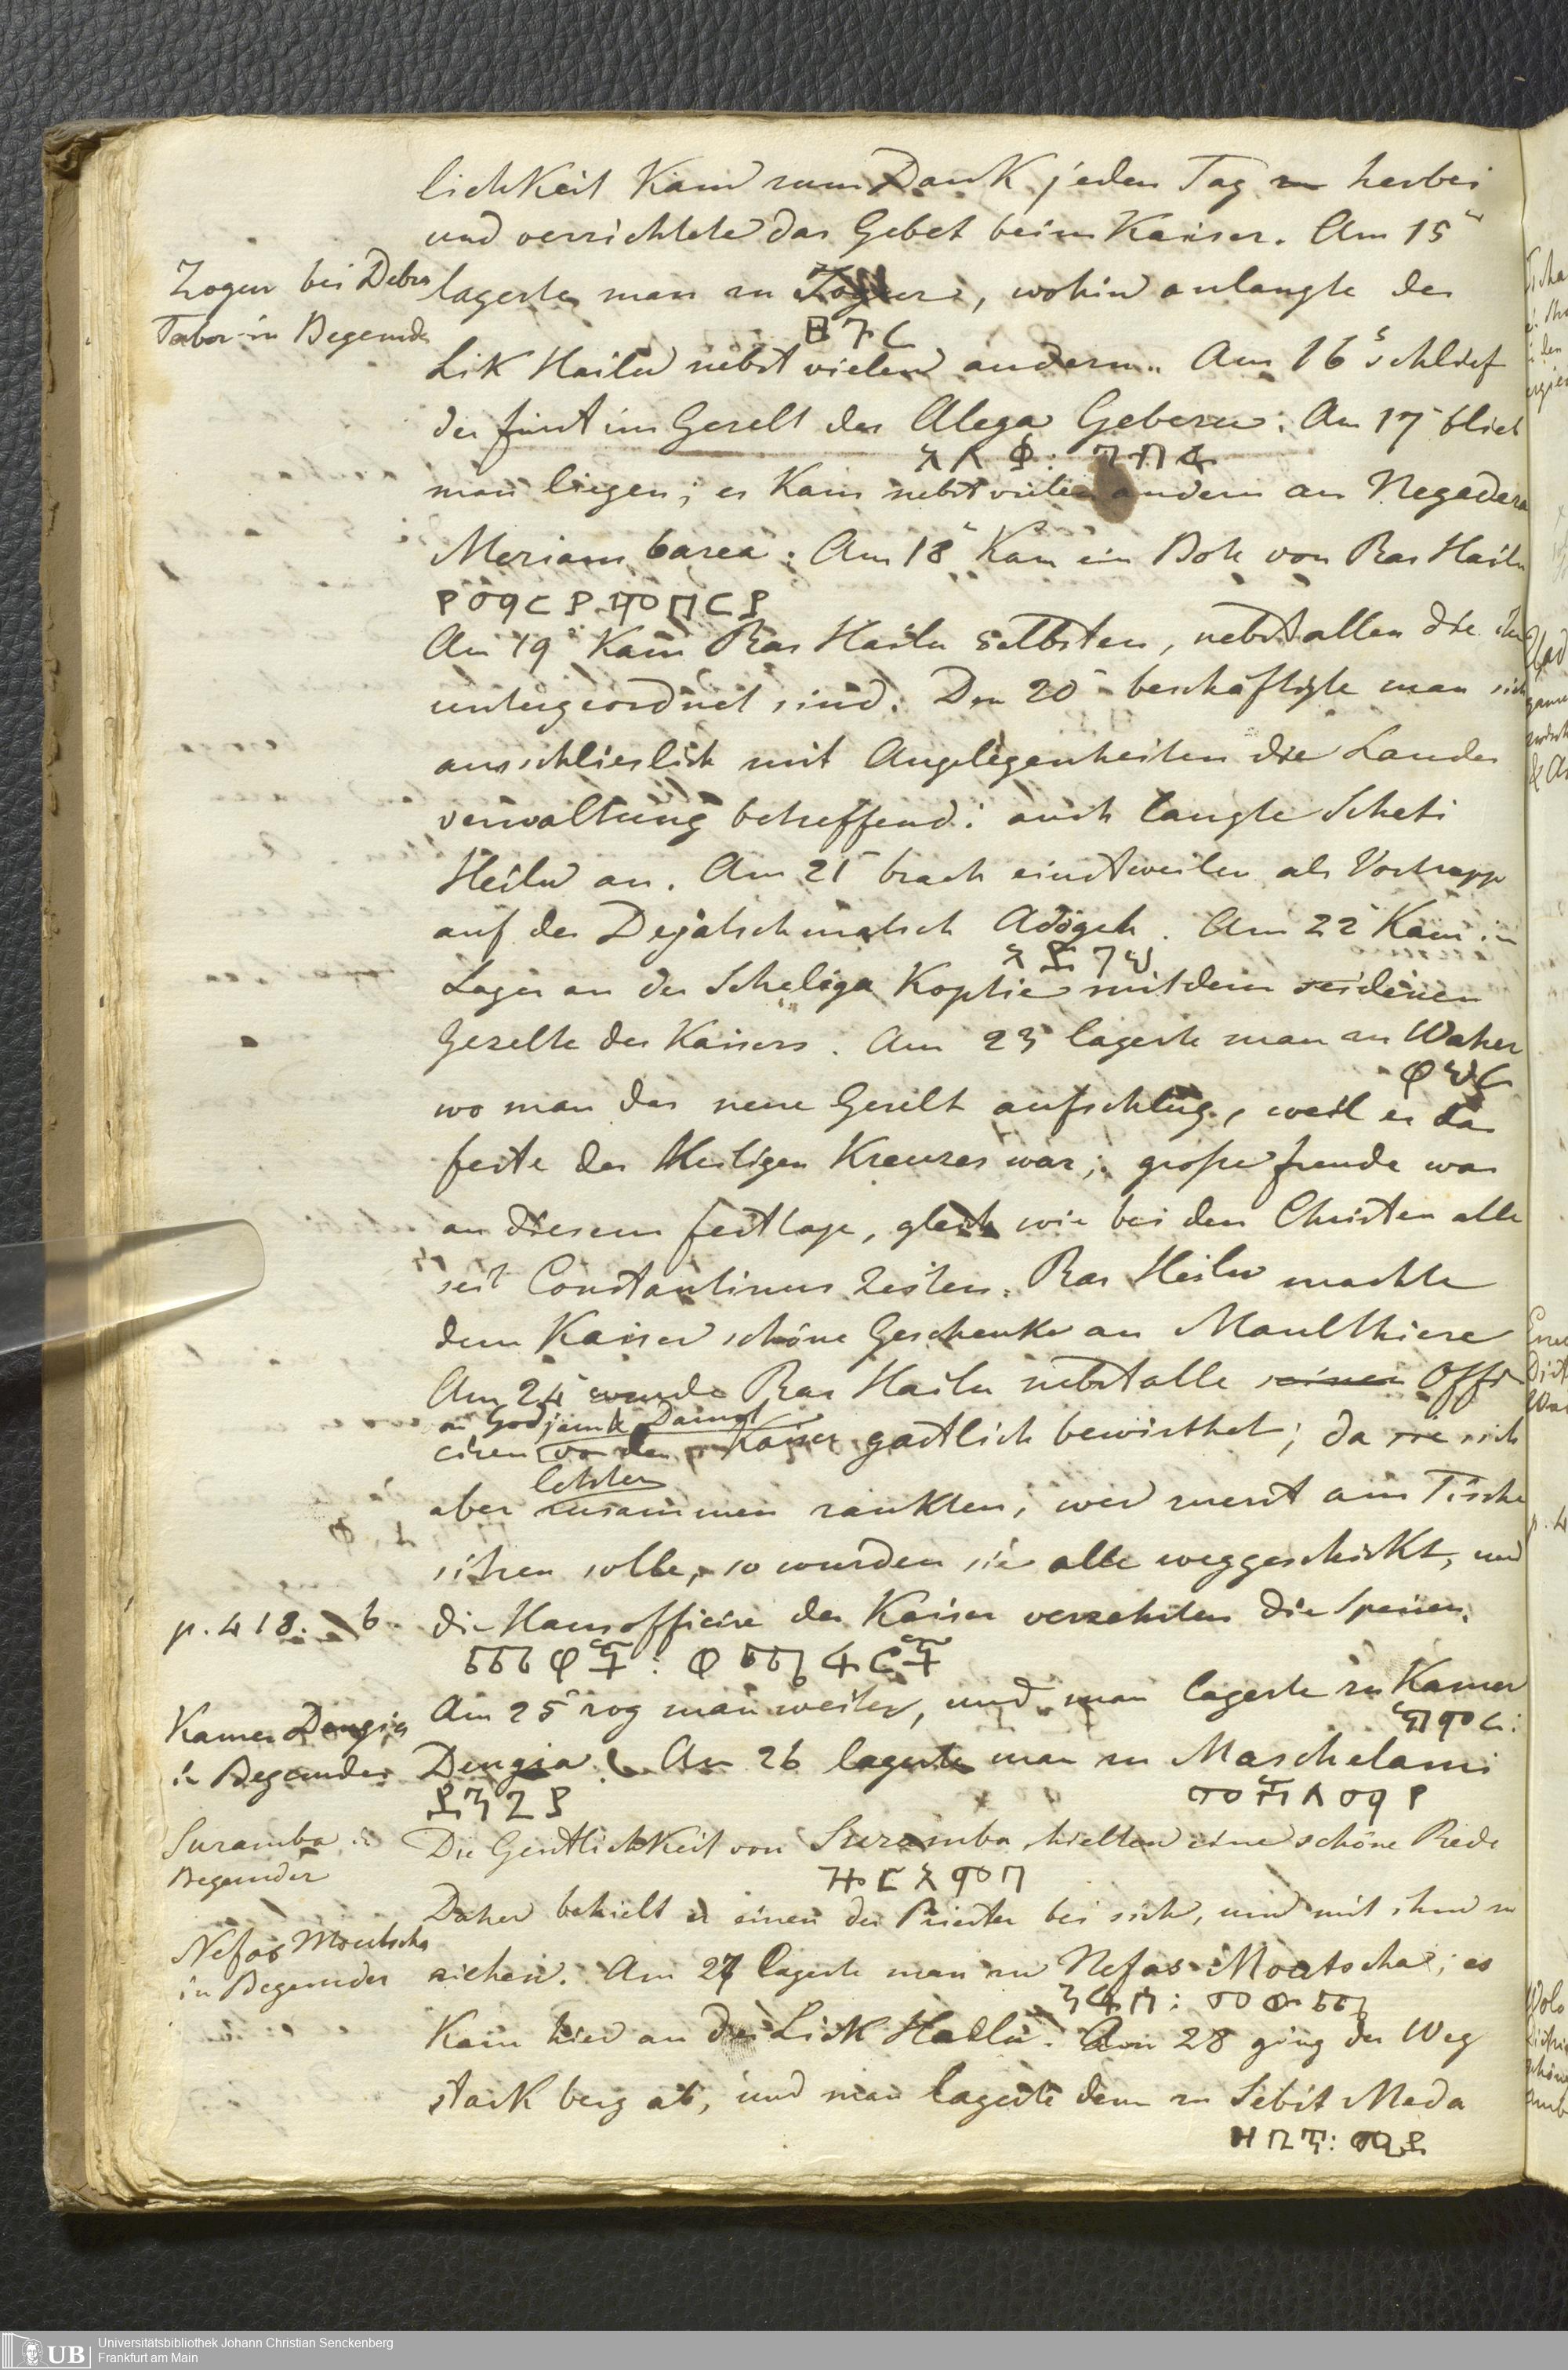 lichkeit kam zum Dank jeden Tag herbei
und verrichtete das Gebet beim Kaiser. Am 15
Zogur bei Debra
Tabor in Begemder
lagerte man zu Zogur, wohin anlangte der
ዞጉር
Lik Hailu nebst vielen andern. Am 16 schlief
der fürst im Gezelt des Alega Geberu. Am 17 blieb
አለቃ: ገብሩ
man liegen; es kam nebst vielen andern an Negadera
Meriam barea. Am 18 kam ein Bote von Ras Hailu
የማርያም ባርያ
Am 19 kam Ras Hailu selbsten, nebst allen die ihm
untergeordnet sind. Den 20 beschäftigte man sich
ausschlieslich mit Angelegenheiten die Landes
verwaltung betreffend: auch langte Scheti
Heilu an. Am 21 brach einstweilen als Vortrapp
auf der Dejatschmatsch Adögeh. Am 22 kam im
አዴገህ
Lager an der Scheliga Koptie mit dem seidenen
Gezelte des Kaisers. Am 23 lagerte man zu Waher
ዋህር
wo man das neue Gezelt aufschlug, weil es das
feste des Heiligen Kreuzes war; große freude war
an diesem festtage, gleich wie bei den Christen alle
seit Constantinus Zeiten. Ras Heilu machte
dem Kaiser schöne Geschenke an Maulthiere
Am 24 wurde Ras Hailu nebst alle seinen Offi
an Godjam & Damot
cieren von den Kaiser gastlich bewirthet; da sie sich
letzten
aber zusammen zankten, wer zuerst am Tische
sitzen solle, so wurden sie alle weggeschickt, und
p. 418. b
die Hausofficire des Kaiser verzehrten die Speisen.
Am 25 zog man weiter, und man lagerte zu Kamer
ከምር:
Kamer Dengia
in Begemder
Dengia. Am 26 lagerte man zu Maschelami
ድንጊያ
መሸለማየ
Suramba in
Begemder
Die Geistlichkeit von Suramba hielten eine schöne Rede
ዙርአምባ
Daher behielt er einen der Priester bei sich, um mit ihm zu
Nefas Moutscha
in Begemder
ziehen. Am 27 lagerte man zu Nefas Moutscha; es
ንፋስ: መውጫ
kam hier an der Lick Hailu. Am 28 ging der Weg
stark berg ab, und man lagerte denn zu Sebit Meda
ዘቢጥ: ሜዳ
UB
Universitätsbibliothek Johann Christian Senckenberg
Frankfurt am Main